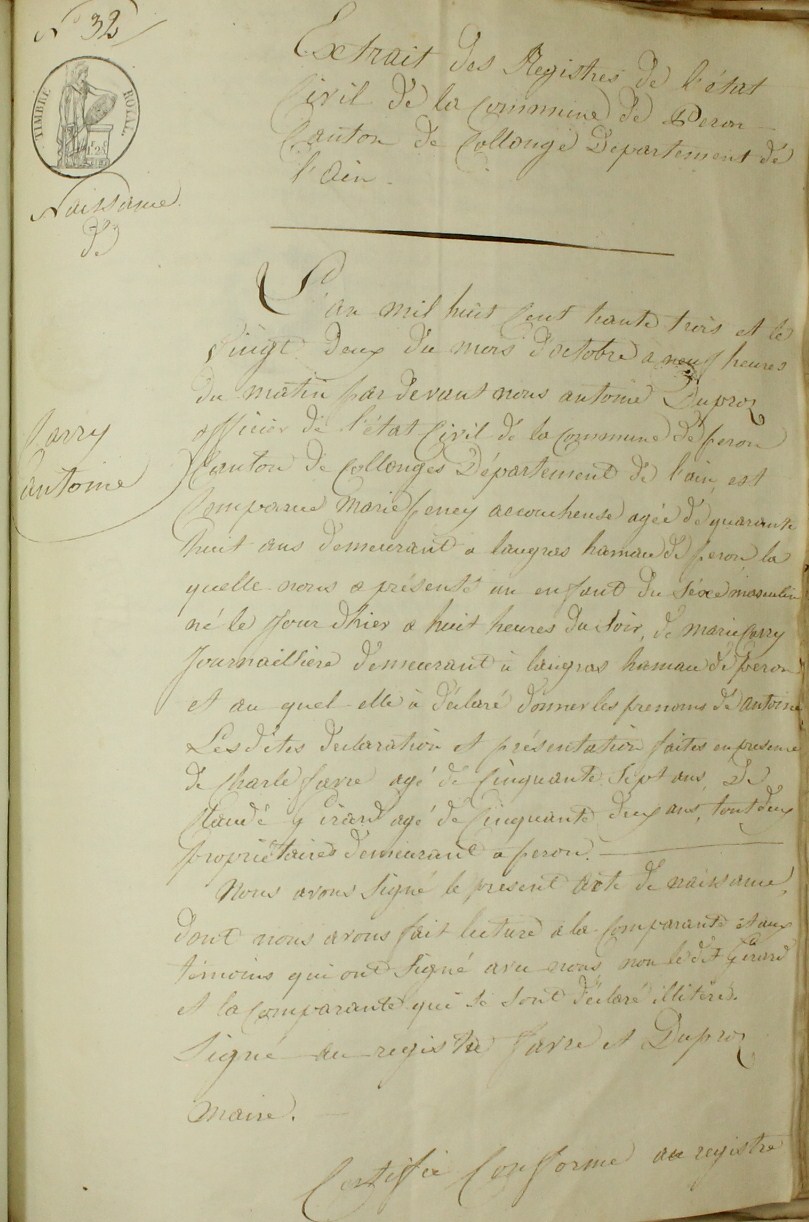 N° 32
TIMBRE ROYAL
Naissance
de
Extrait des Registres de l'état
Civil de la Commune de Peron
Canton de Collonge Departement de
l'ain.
L'an mil huit cent trante trois et le
vingt deux du mois d'octobre a neuf heures
du matin par devant nous antoine Duproz
officier de l'état Civil de la Commune de peron
Canton de Collonges Département de l'ain, est
Comparue Marie feney accoucheuse agée de quarante
huit ans demeurant a laugras hamau de peron la
quelle nous a présenté un enfant du Séxe masculin
né le Jour dhier a huit heures du Soir, de marie Carry
Journaillière demeurant à laugras hamau de peron
et au quel elle à déclaré donner les prenoms de antoine
Les dites déclaration et présentation faites en presence
de Charle favre agé de Cinquante Sept ans, De
Claude girard agé de Cinquante deux ans, tout deux
propriétaires demeurant a peron.
Nous avons Signé le présent acte de naissance,
dont nous avons fait lecture a la Comparante et aux
témoins qui ont Signé avec nous, non le dit girard
et la Comparante qui se sont déclaré illitéré.
Signé au registre favre et Duproz
maire.
Certifié Conforme au registre
antoine